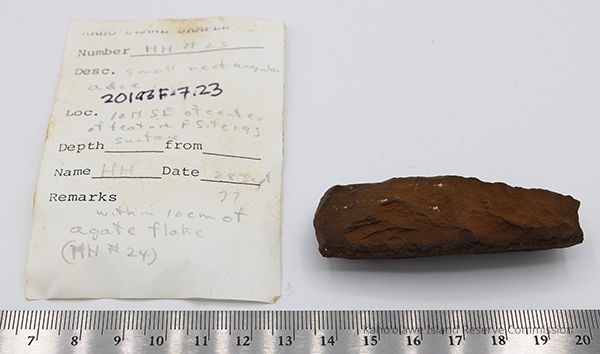 KAHO'OLAWE SAMPLE
Number HH # 23
Desc. small rectangular
adze
20193F-7.23
Loc. 10 M SE of center
of feature F Site 193
surface
Depth from
Name HH Date
77
Remarks
within 10cm of
agate flake
(HH # 24)
Kaho'olawe Island Reserve Commission
7 8 9 10 11 12 13 14 15 16 17 18 19 20